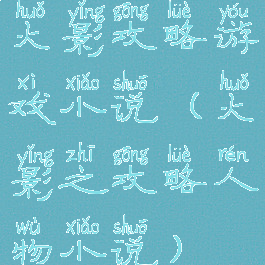 huǒ yǐng gōng lüè yóu
火影攻略游
xì xiǎo shuō huǒ
戏小说（火
yǐng zhī gōng lüè rén
影之攻略人
wù xiǎo shuō
物小说）